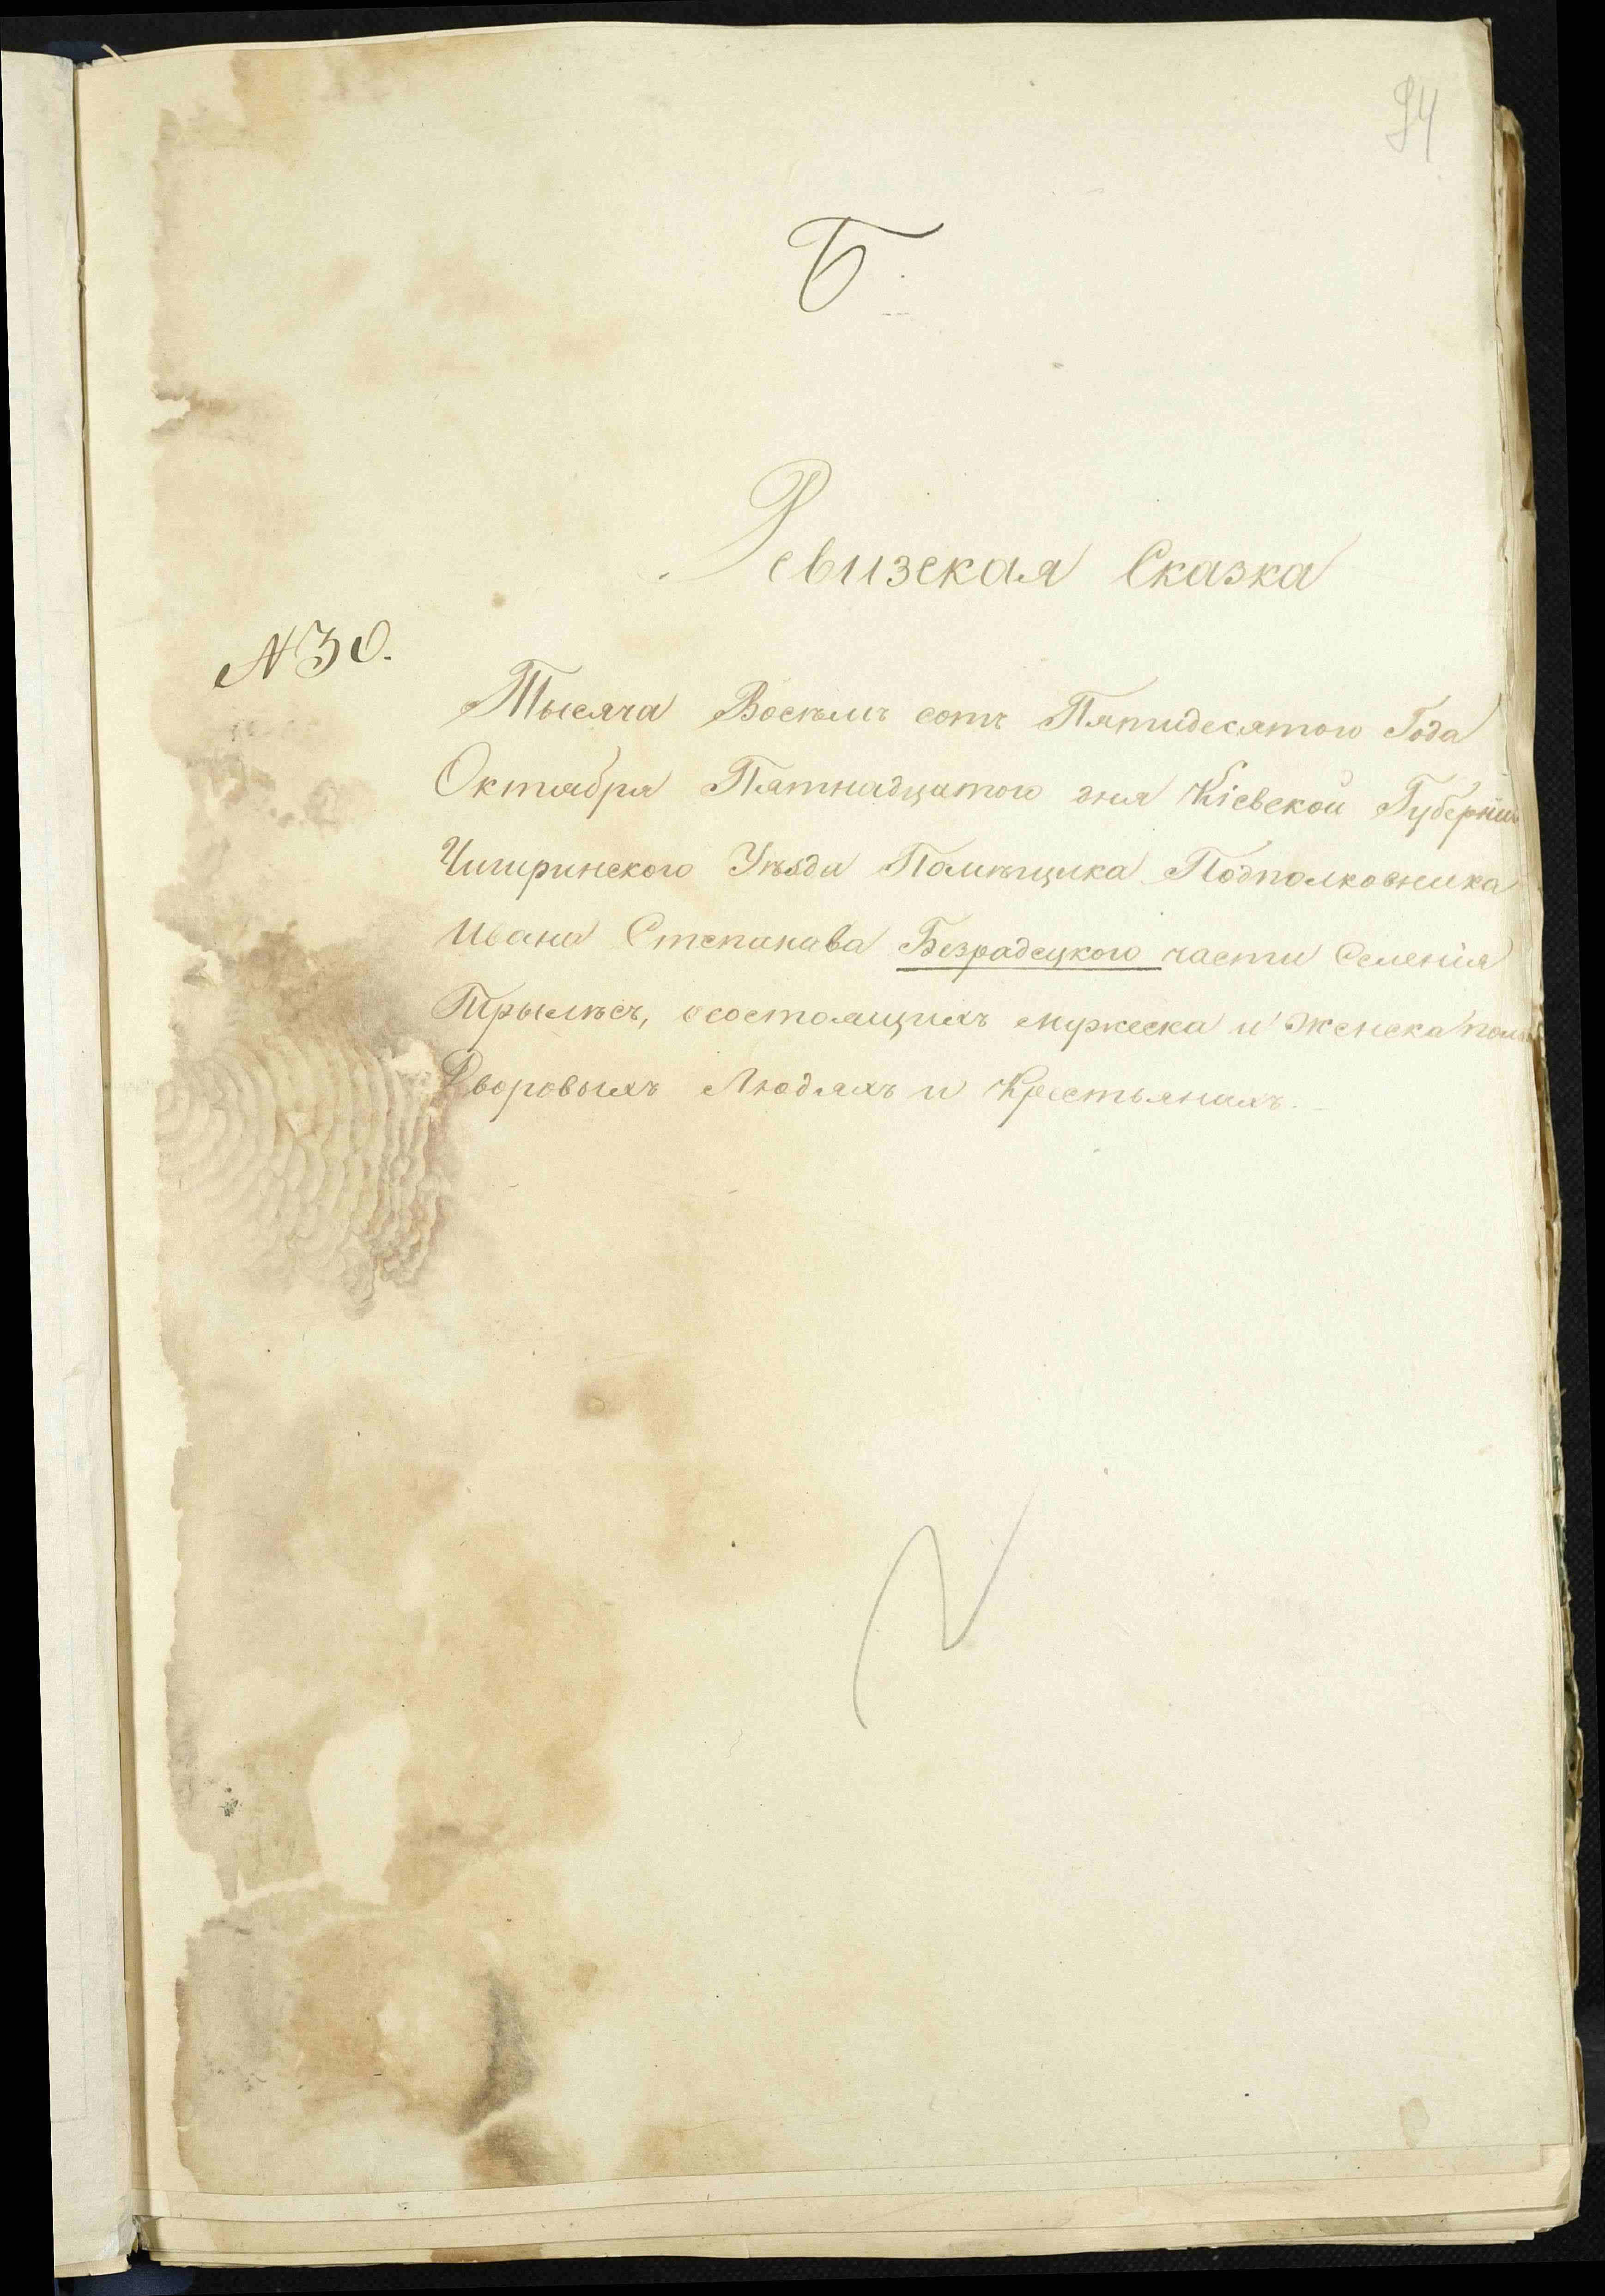 94
Б.
Ревизская Сказка
№30.
Тысяча Восѣмъ сотъ Пятидесятого Года
Октября Пятнадцатого дня Кіевской Губерніи
Чигиринского Уѣзда Помѣщика Подполковника
Ивана Степанава Безрадецкого части Селенія
Трылѣсъ, о состоящихъ мужеска и женска пола
Дворовыхъ Людяхъ и Крестьянахъ.